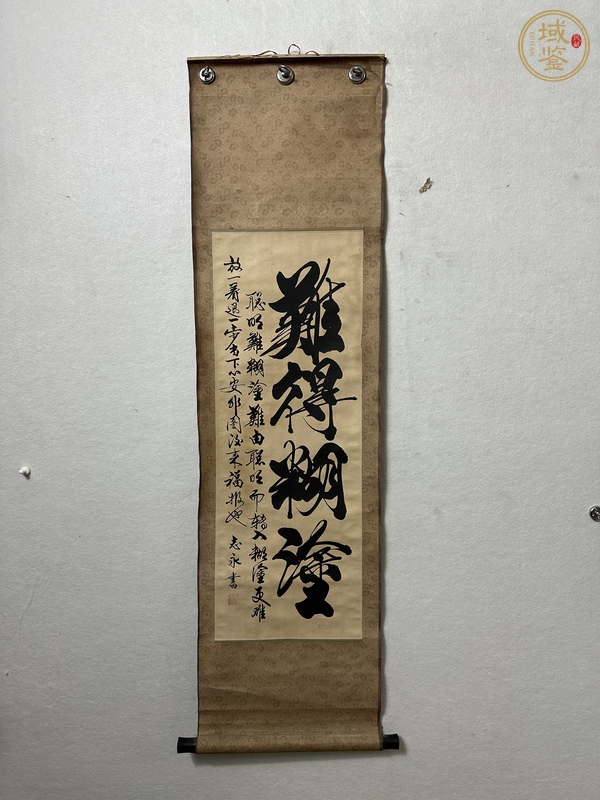 難得糊塗
聰明難糊塗難由聰明而轉入糊塗更难
放一着退一步當下心安非圖後來福报也
志永書
域鉴